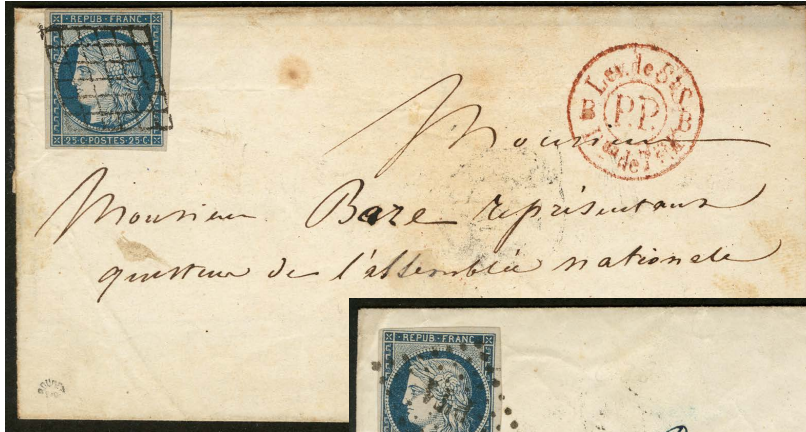 REPUB·FRANC
25·C·POSTES·25·C
Lev. de 5h.S.
B P.P. B
Monsieur
Monsieur Baze représentant
questeur de l'assemblée nationale
REPUB·FRANC